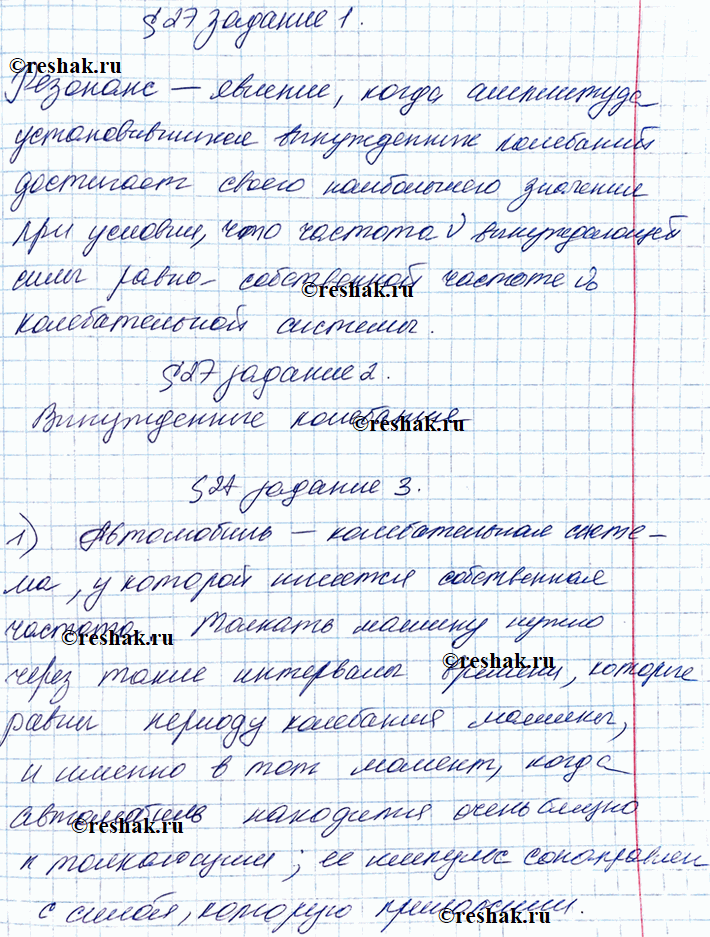 §27 задание 1.
©reshak.ru
Резонанс — явление, когда амплитуда
установившихся вынужденных колебаний
достигает своего наибольшего значения
при условии, что частота ν вынуждающей
силы равна собственной частоте ν₀
©reshak.ru
колебательной системы.
§27 задание 2.
Вынужденные колебания
©reshak.ru
§27 задание 3.
1) Автомобиль — колебательная систе-
ма, у которой имеется собственная
частота. Толкать машину нужно
©reshak.ru
©reshak.ru
через такие интервалы времени, которые
равны периоду колебания машины,
и именно в тот момент, когда
автомобиль находится очень близко
©reshak.ru
к толкающим; ее импульс сонаправлен
с силой, которую приложили.
©reshak.ru